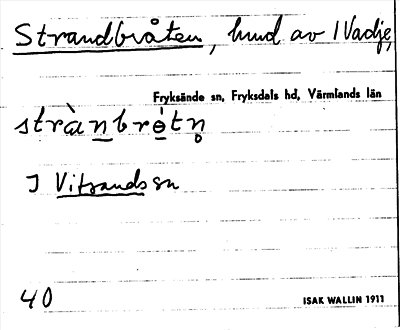 Strandbråten, hmd av 1 Vadje,
Fryksände sn, Fryksdals hd, Värmlands län
stràn̲brò̲tn̥
I Vitsands sn
40 ISAK WALLIN 1911